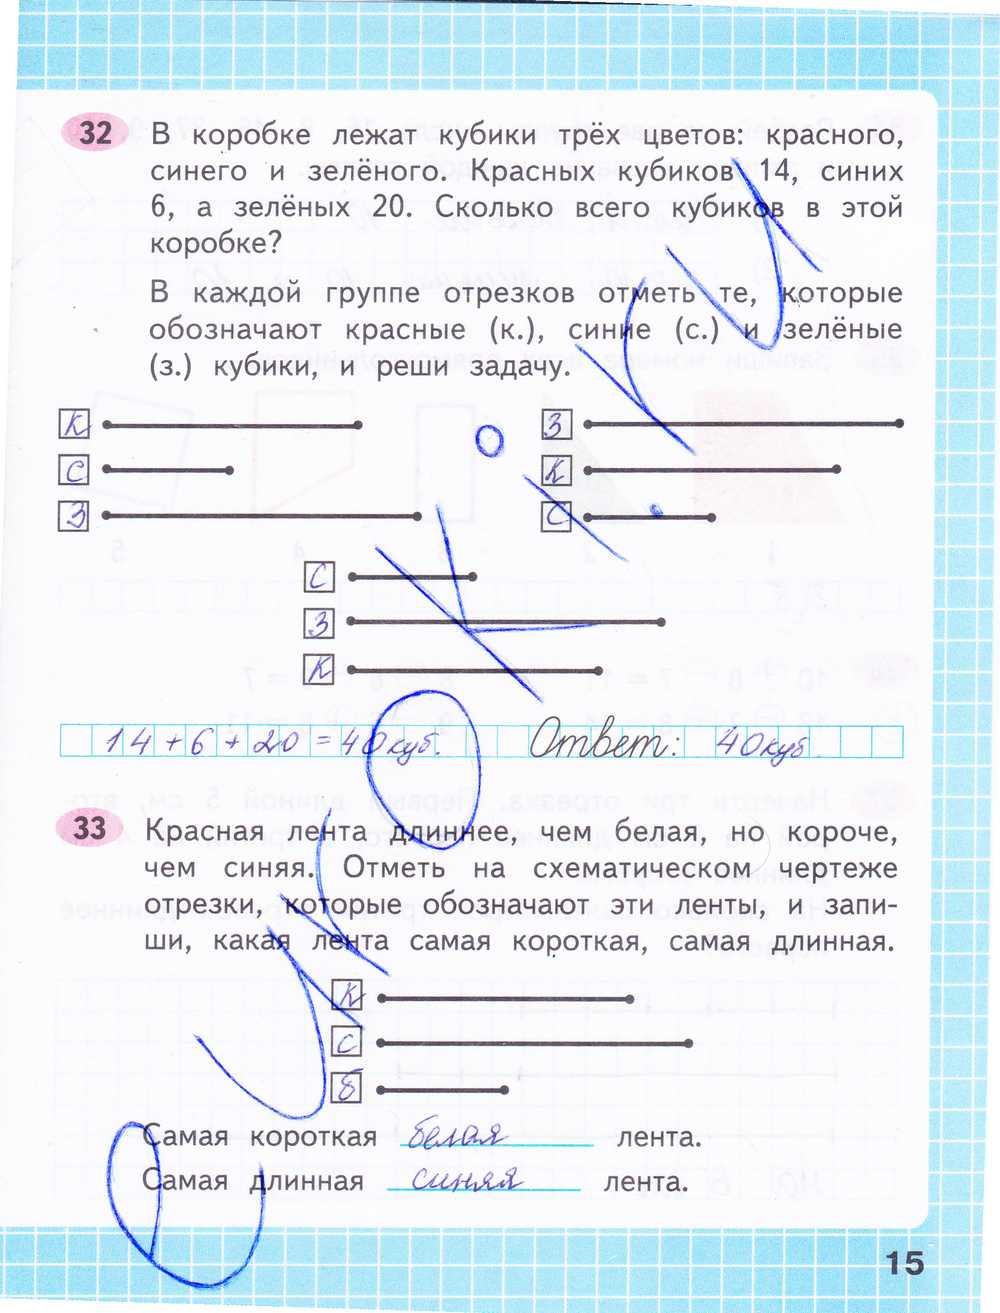 32 В коробке лежат кубики трёх цветов: красного,
синего и зелёного. Красных кубиков 14, синих
6, а зелёных 20. Сколько всего кубиков в этой
коробке?
В каждой группе отрезков отметь те, которые
обозначают красные (к.), синие (с.) и зелёные
(з.) кубики, и реши задачу.
К
С
З
З
К
С
С
З
К
14 + 6 + 20 = 40 куб. Ответ: 40 куб.
33 Красная лента длиннее, чем белая, но короче,
чем синяя. Отметь на схематическом чертеже
отрезки, которые обозначают эти ленты, и запи-
ши, какая лента самая короткая, самая длинная.
К
С
б
Самая короткая белая лента.
Самая длинная синяя лента.
15